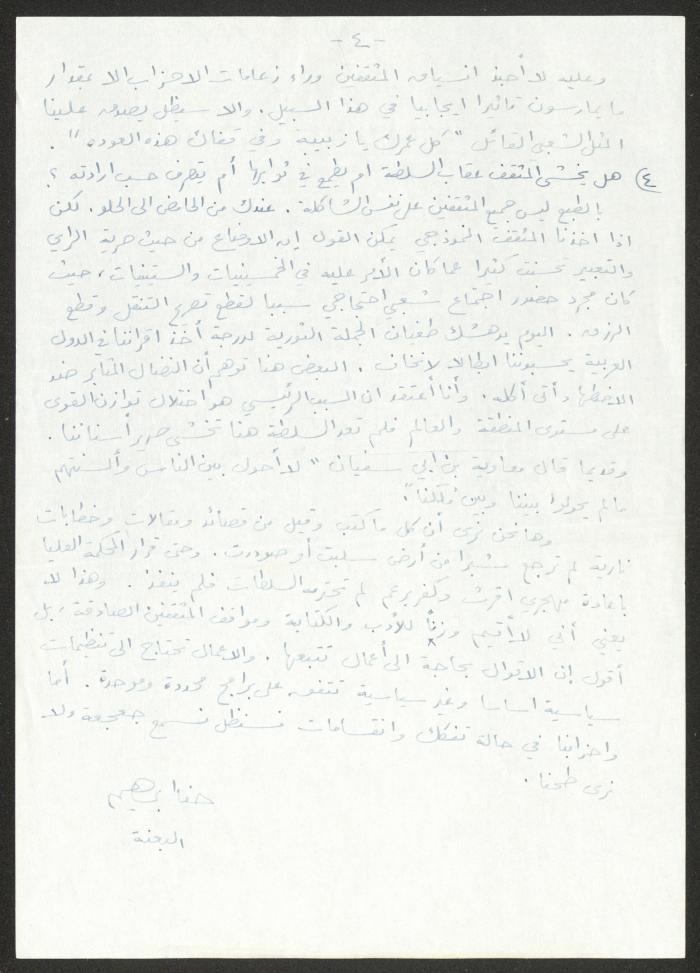 - ٤ -
وعليه لا أحبذ انسياق المثقفين وراء زعامات الاحزاب الا بمقدار
ما يمارسون تأثيرا ايجابيا في هذا السبيل. والا سيظل يصدق علينا
المثل الشعبي القائل "كل عمرك يا زبيبة وفي قفاك هذه العوده".
٤) هل يخشى المثقف عقاب السلطة ام يطمع في ثوابها أم يتصرف حسب ارادته ؟
بالطبع ليس جميع المثقفين على نفس الشاكلة. عندك من الحامض الى الحلو. لكن
اذا اخذنا المثقف النموذجي يمكن القول إن الاوضاع من حيث حرية الرأي
والتعبير تحسنت كثيرا عما كان الأمر عليه في الخمسينيات والستينيات، حيث
كان مجرد حضور اجتماع شعبي احتجاجي سببا لقطع تصريح التنقل وقطع
الرزق. اليوم يدهشك طغيان الجملة الثورية لدرجة أخذ اقراننا في الدول
العربية يحسبوننا ابطالا لا نخاف. البعض هنا توهم أن النضال المثابر ضد
الاضطهاد أتى أكله. وأنا أعتقد ان السبب الرئيسي هو اختلال توازن القوى
على مستوى المنطقة والعالم فلم تعد السلطة هنا تخشى صرير أسناننا.
وقديما قال معاوية بن ابي سفيان "لا أحول بين الناس وألسنتهم
مالم يحولوا بيننا وبين مُلكنا".
وها نحن نرى أن كل ما كتب وقيل من قصائد ومقالات وخطابات
نارية لم ترجع شبرا من أرض سلبت أو صودرت. وحتى قرار المحكمة العليا
باعادة مهجري اقرث وكفر برعم لم تحترمه السلطات فلم ينفذ. وهذا لا
يعني أني لا أقيم وزناً للأدب والكتابة ومواقف المثقفين الصادقة، بل
أقول إن الاقوال بحاجة الى أعمال تتبعها. والاعمال تحتاج الى تنظيمات
سياسية اساسا وغير سياسية تتفق على برامج محددة وموحدة. أما
واحزابنا في حالة تفكك وانقسامات فسنظل نسمع جعجعة ولا
نرى طحنا.
حنا ابراهيم
البعنة